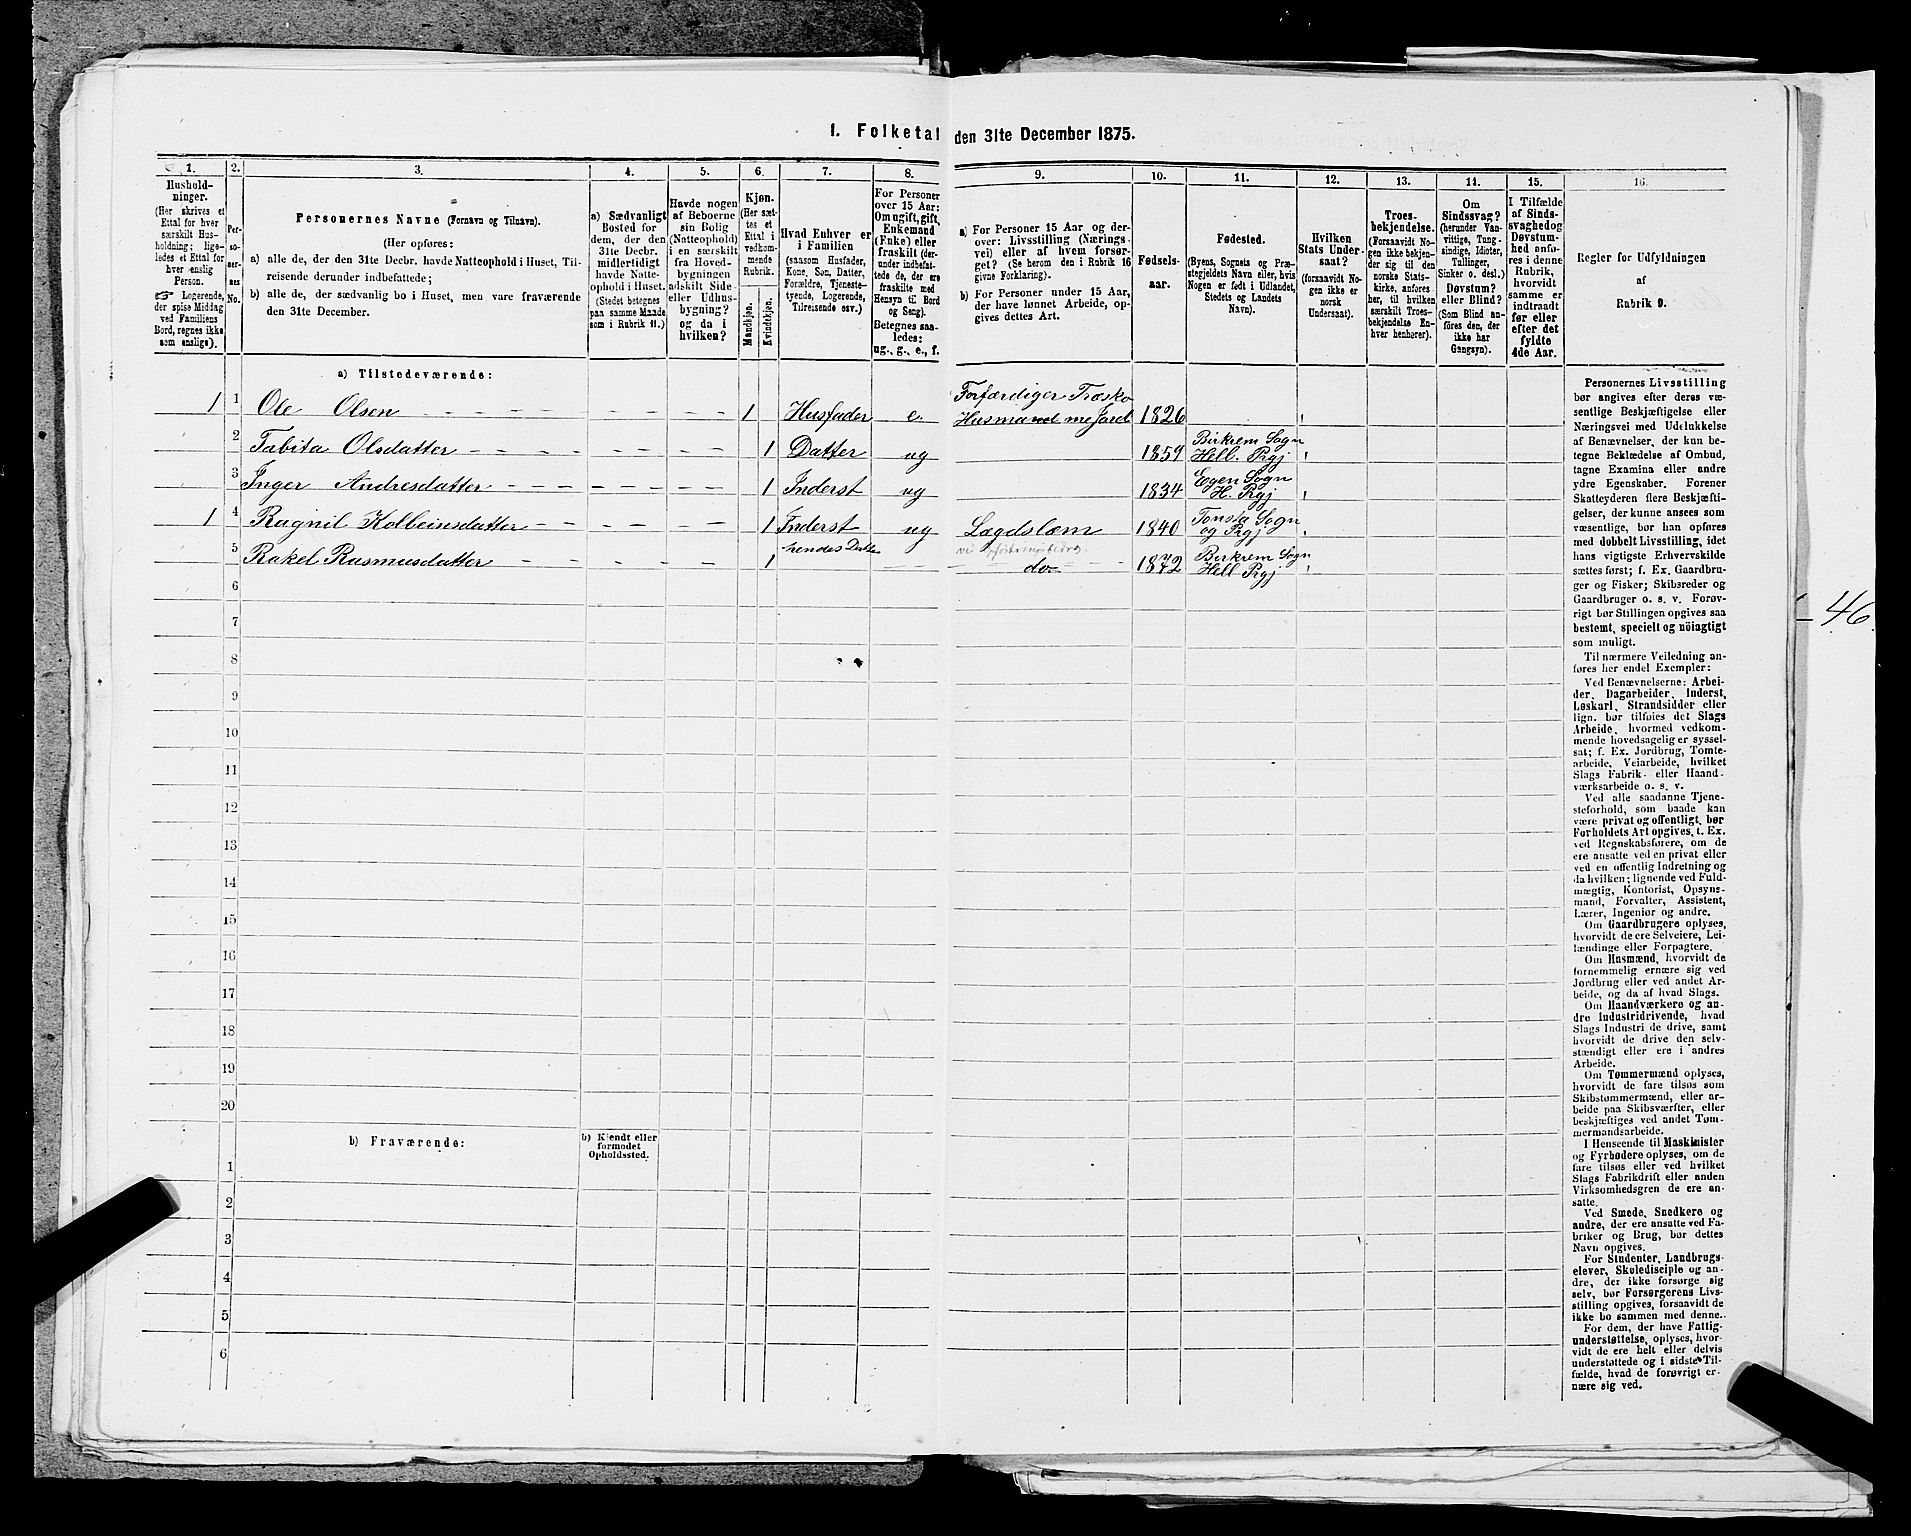 1. Folketal den 31te December 1875.
1.
Hushold-
ninger.
(Her skrives et
Ettal for hver
særskilt Hus-
holdning; lige-
ledes et Ettal for
hver enslig
Person.
☞ Logerende,
der spise Middag
ved Familiens
Bord, regnes ikke
som enslige).
2.
Per-
so-
ner-
nes
No.
3.
Personernes Navne (Fornavn og Tilnavn).
(Her opføres:
a) alle de, der den 31te Decbr. havde Natteophold i Huset, Til-
reisende derunder indbefattede;
b) alle de, der sædvanlig bo i Huset, men vare fraværende
den 31te December.
4.
a) Sædvanligt
Bosted for
dem, der den
31te Decbr.
midlertidigt
havde Natte-
ophold i Huset.
(Stedet betegnes
paa samme Maade
som i Rubrik 11.)
5.
Havde nogen
af Beboerne
sin Bolig
(Natteophold)
i en særskilt
fra Hoved-
bygningen
adskilt Side-
eller Udhus-
bygning?
og da i
hvilken?
6.
Kjøn.
(Her sæt-
tes et
Ettal i
vedkom-
mende
Rubrik.
Mandkjøn.
Kvindkjøn.
7.
Hvad Enhver er
i Familien
(saasom Husfader,
Kone, Søn, Datter,
Forældre, Tjeneste-
tyende, Logerende,
Tilreisende osv.)
8.
For Personer
over 15 Aar:
Om ugift, gift,
Enkemand
(Enke) eller
fraskilt (der-
under indbefat-
tede de, der ere
fraskilte med
Hensyn til Bord
og Seng).
Betegnes saa-
ledes:
ug., g., e., f.
9.
a) For Personer 15 Aar og der-
over: Livsstilling (Nærings-
vei) eller af hvem forsør-
get? (Se herom den i Rubrik 16
givne Forklaring).
b) For Personer under 15 Aar,
der have lønnet Arbeide, op-
gives dettes Art.
10.
Fødsels-
aar.
11.
Fødested.
(Byens, Sognets og Præ-
stegjeldets Navn eller, hvis
Nogen er født i Udlandet,
Stedets og Landets
Navn).
12.
Hvilken
Stats Under-
saat?
(forsaavidt No-
gen ikke er
norsk
Undersaat).
13.
Troes-
bekjendelse.
(Forsaavidt No-
gen ikke bekjen-
der sig til den
norske Stats-
kirke, anføres
her, til hvilken
særskilt Troes-
bekjendelse En-
hver henhører).
14.
Om
Sindssvag?
(herunder Van-
vittige, Tung-
sindige, Idioter,
Tullinger,
Sinker o. desl.)
Døvstum?
eller Blind?
(Som Blind an-
føres den, der
ikke har
Gangsyn).
15.
I Tilfælde
af Sinds-
svaghed og
Døvstum-
hed anfø-
res i denne
Rubrik,
hvorvidt
samme er
indtraadt
før eller
efter det
fyldte
4de Aar.
16.
Regler for Udfyldningen
af
Rubrik 9.
a) Tilstedeværende:
Forfærdiger Træsko
1 1 Ole Olsen 1 Husfader e. Husmand me Jord 1826
2 Tabita Olsdatter 1 Datter ug 1859 Birkrem Sogn
Hell. Prgj
3 Inger Andresdatter 1 Inderst ug 1834 Egen Sogn
H. Prgj
1 4 Ragnil Kolbeinsdatter 1 Inderst ug Lægdslæm 1840 Tonsta Sogn
og Prgj
5 Rakel Rasmusdatter 1 hendes Datter do 1872 Birkrem Sogn
Hell Prgj
6
7
8
9
10
11
12
13
14
15
16
17
18
19
20
b) Fraværende:
b) Kjendt eller
formodet
Opholdssted.
1
2
3
4
5
6
Personernes Livsstilling
bør angives efter deres væ-
sentlige Beskjæftigelse eller
Næringsvei med Udelukkelse
af Benævnelser, der kun be-
tegne Beklædelse af Ombud,
tagne Examina eller andre
ydre Egenskaber. Forener
Skatteyderen flere Beskjæfti-
gelser, der kunne ansees som
væsentlige, bør han opføres
med dobbelt Livsstilling, idet
hans vigtigste Erhvervskilde
sættes først; f. Ex. Gaardbru-
ger og Fisker; Skibsreder og
Gaardbruger o. s. v. Forøv-
rigt bør Stillingen opgives saa
bestemt, specielt og nöiagtigt
som muligt.
Til nærmere Veiledning an-
føres her endel Exempler:
Ved Benævnelserne: Arbei-
der, Dagarbeider, Inderst,
Løskarl, Strandsidder eller
lign. bør tilføies det Slags
Arbeide, hvormed vedkom-
mende hovedsagelig er syssel-
sat; f. Ex. Jordbrug, Tomte-
arbeide, Veiarbeide, hvilket
Slags Fabrik- eller Haand-
værksarbeide o. s. v.
Ved alle saadanne Tjene-
steforhold, som baade kan
være privat og offentligt, bør
Forholdets Art opgives, t. Ex.
ved Regnskabsførere, om de
ere ansatte ved en privat eller
ved en offentlig Indretning og
da hvilken; lignende ved Fuld-
mægtig, Kontorist, Opsyns-
mand, Forvalter, Assistent,
Lærer, Ingeniør og andre.
Om Gaardbrugere oplyses,
hvorvidt de ere Selveiere, Lei-
lændinge eller Forpagtere.
Om Husmænd, hvorvidt de
fornemmelig ernære sig ved
Jordbrug eller ved andet Ar-
beide, og da af hvad Slags.
Om Haandværkere og an-
dre Industridrivende, hvad
Slags Industri de drive, samt
hvorvidt de drive den selv-
stændigt eller ere i andres
Arbeide.
Om Tømmermænd oplyses,
hvorvidt de fare tilsøs som
Skibstømmermænd, eller ar-
beide paa Skibsværfter, eller
beskjæftiges ved andet Töm-
mermandsarbeide.
I Henseende til Maskinister
og Fyrbødere oplyses, om de
fare tilsøs eller ved hvilket
Slags Fabrikdrift eller anden
Virksomhedsgren de ere an-
satte.
Ved Smede, Snedkere og
andre, der ere ansatte ved Fa-
briker og Brug, bør dettes
Navn opgives.
For Studenter, Landbrugs-
elever, Skoledisciple og an-
dre, der ikke forsørge sig
selv, bør Forsørgerens Livs-
stilling opgives, forsaavidt de
ikke bo sammen med denne.
For dem, der have Fattig-
understøttelse, oplyses, hvor-
vidt de ere helt eller delvis
understøttede og i sidste Til-
fælde, hvad de forøvrigt er-
nære sig ved.
46.